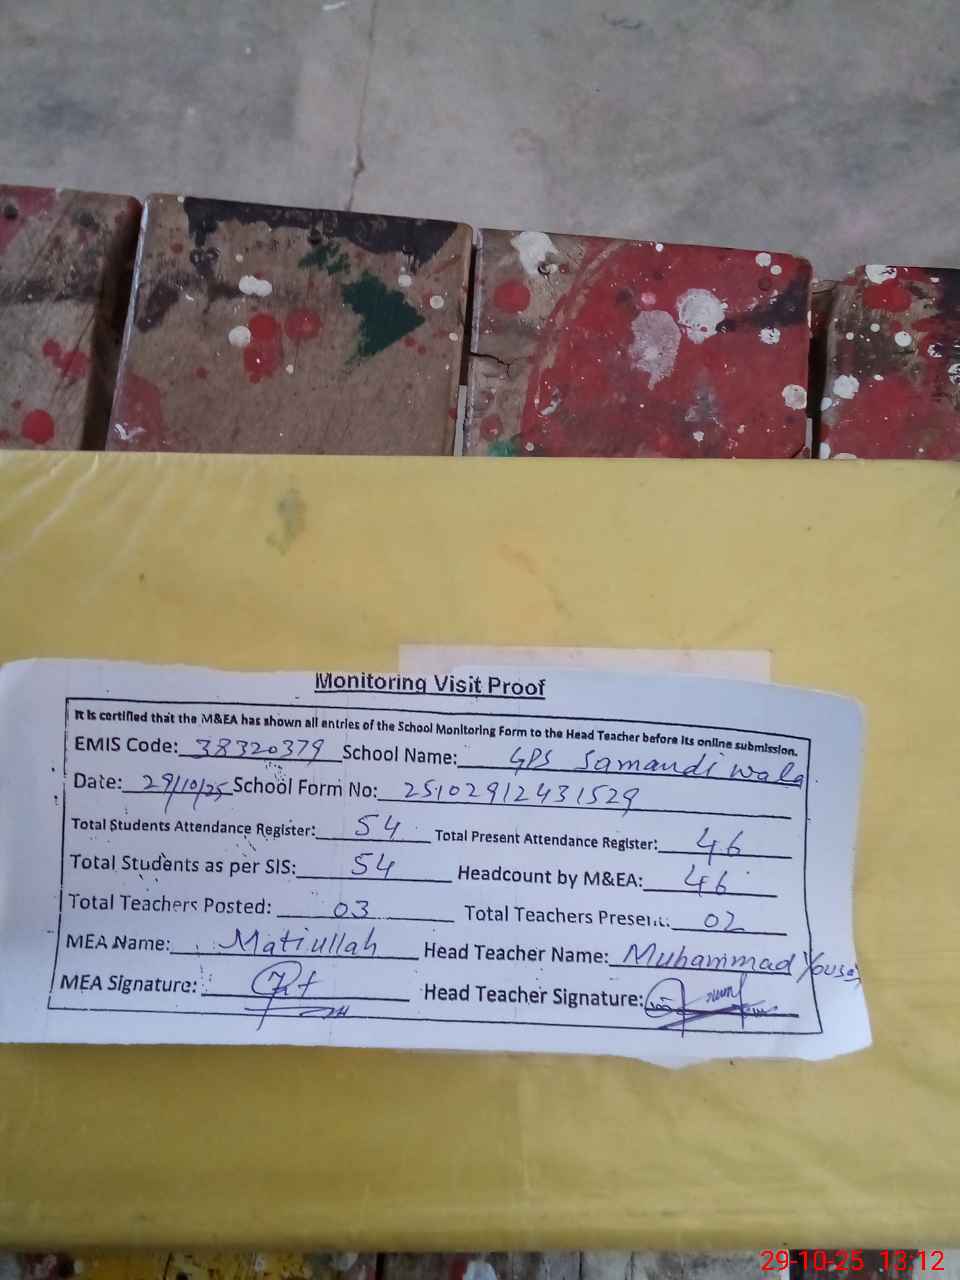 Monitoring Visit Proof
It is certified that the M&EA has shown all entries of the School Monitoring Form to the Head Teacher before its online submission.
EMIS Code: 38320379 School Name: GPS Samandi wala
Date: 29/10/25 School Form No: 25102912431529
Total Students Attendance Register: 54 Total Present Attendance Register: 46
Total Students as per SIS: 54 Headcount by M&EA: 46
Total Teachers Posted: 03 Total Teachers Present: 02
MEA Name: Matiullah Head Teacher Name: Muhammad Yousaf
MEA Signature: Head Teacher Signature:
29-10-25 13:12